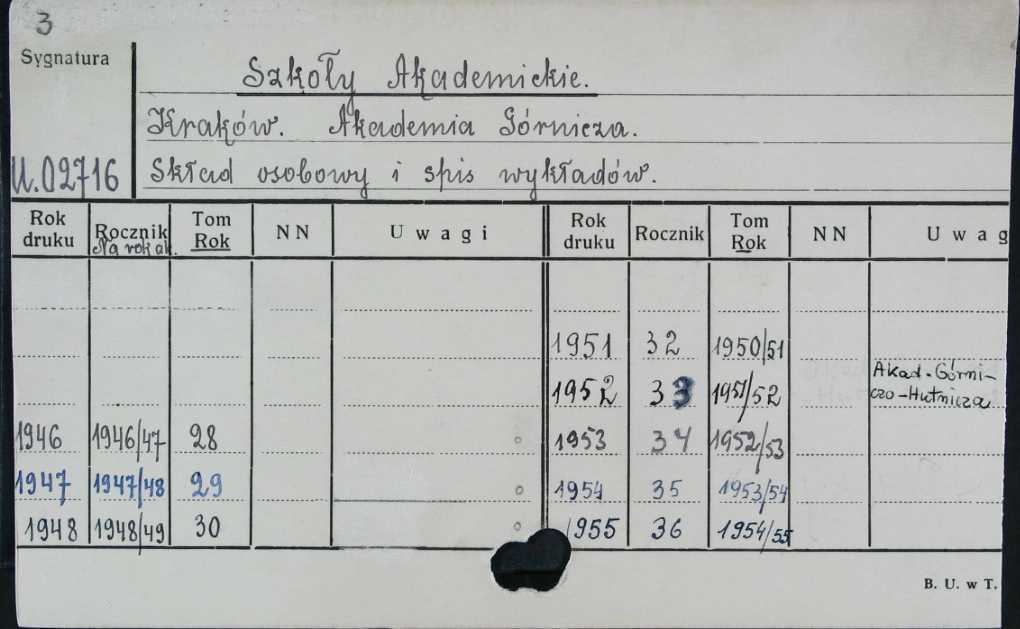 3
Sygnatura
Szkoły Akademickie.
Kraków. Akademia Górnicza.
U.02716 Skład osobowy i spis wykładów.
Rok druku Rocznik Na rok ak. Tom Rok NN Uwagi Rok druku Rocznik Tom Rok NN Uwag
1951 32 1950/51
1952 33 1951/52 Akad. Górni-
czo-Hutnicza
1946 1946/47 28 1953 34 1952/53
1947 1947/48 29 1954 35 1953/54
1948 1948/49 30 1955 36 1954/55
B. U. w T.